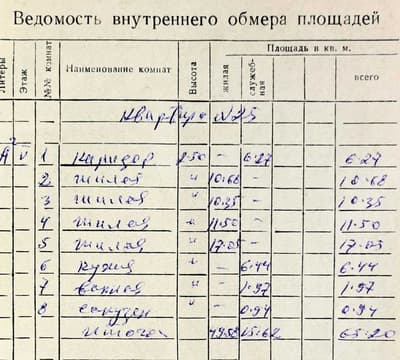 Ведомость внутреннего обмера площадей
Литеры Этаж №№ комнат Наименование комнат Высота Площадь в кв. м.
жилая служебная всего
Квартира №25
А V 1 каридор 2.50 – 6.27 6.27
2 жилая " 10.68 – 10.68
3 жилая " 10.35 – 10.35
4 жилая " 11.50 – 11.50
5 жилая " 17.05 – 17.05
6 кухня " – 6.44 6.44
7 ванная " – 1.97 1.97
8 санузел " – 0.94 0.94
Итого: 49.58 15.62 65.20